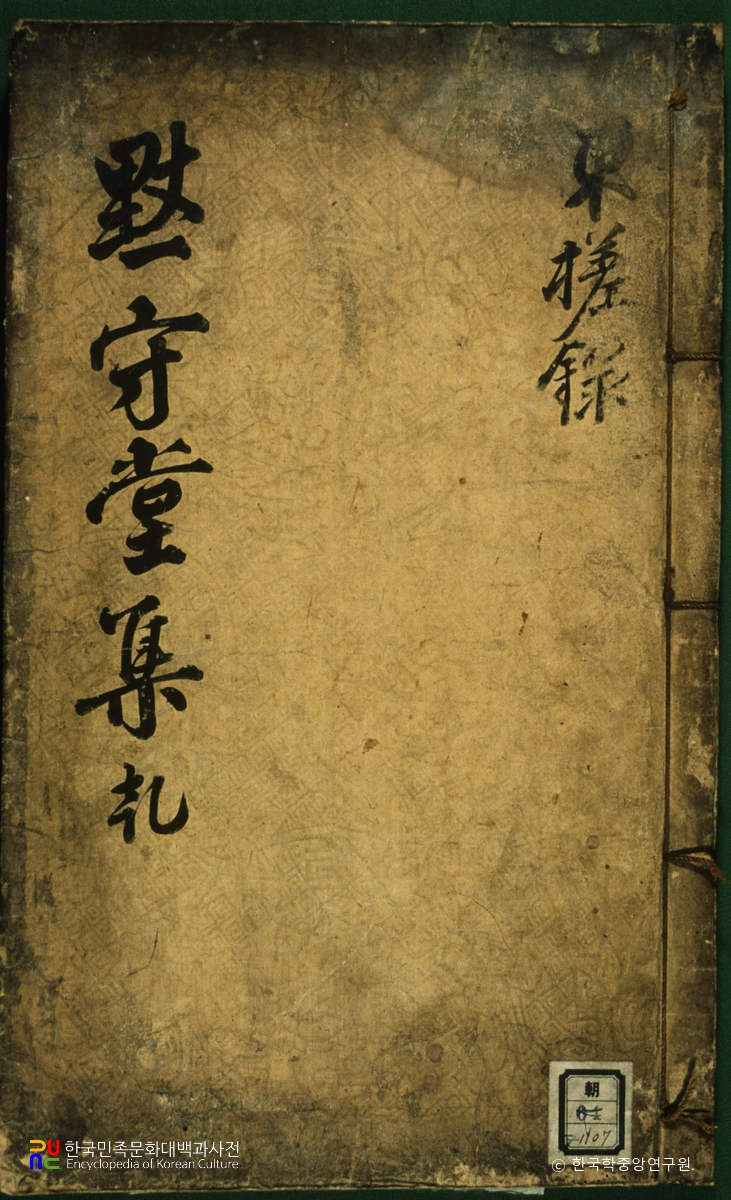 東槎錄
默守堂集
朝
한국민족문화대백과사전
Encyclopedia of Korean Culture
© 한국학중앙연구원